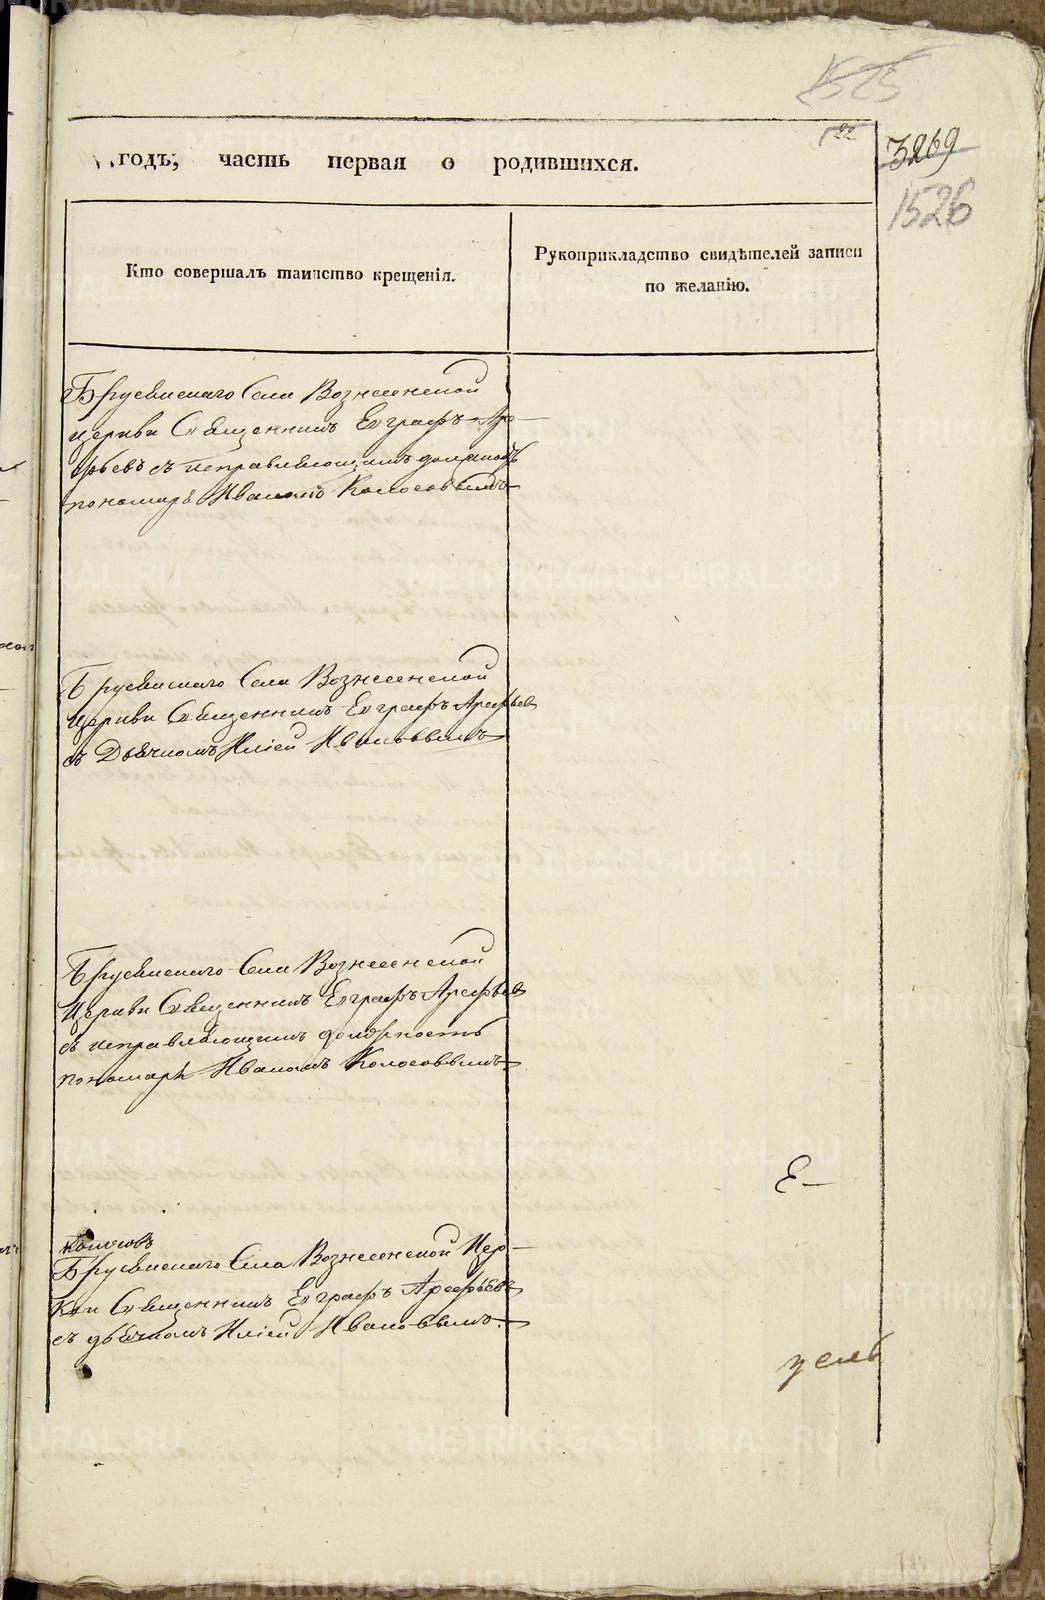 1525
122
годъ, часть первая о родившихся.
3269
1526
Кто совершалъ таинство крещенія.
Рукоприкладство свидѣтелей записи
по желанію.
Брусянскаго Села Вознесенской
церкви Священникъ Евграфъ Аре-
фьевъ съ исправляющимъ должность
пономаря Иваномъ Колосовымъ
Брусянскаго Села Вознесенской
Церкви Священникъ Евграфъ Арефьев
съ Дьячкомъ Иліей Ивановымъ
Брусянскаго Села Вознесенской
Церкви Священникъ Евграфъ Арефьев
съ исправляющимъ должность
пономаря Иваномъ Колосовымъ
Е
Брусянскаго Села Вознесенской Цер-
кви Священникъ Евграфъ Арефьевъ
съ дьячкомъ Иліей Ивановымъ.
METRIKI.GASO-URAL.RU